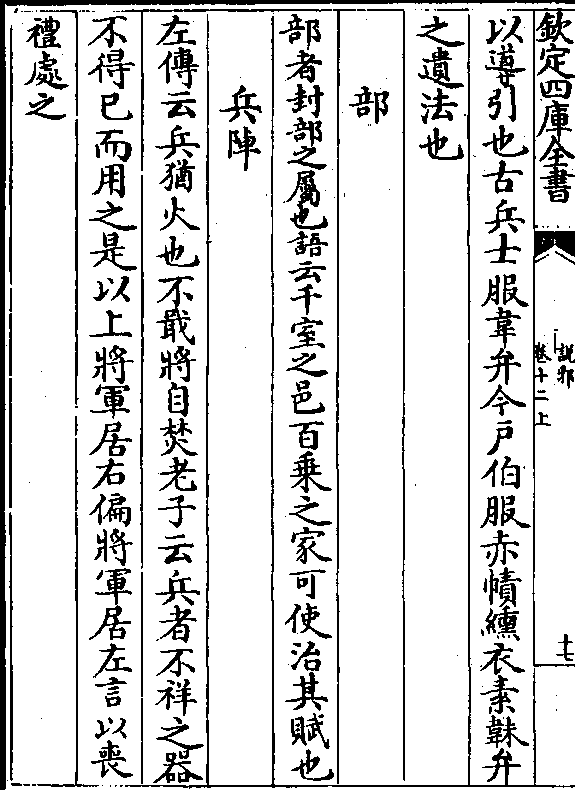 欽定四庫全書
說郛
卷十二上
十七
以導引也古兵士服韋弁今戶伯服赤幘纁衣素韎弁
之遺法也
部
部者封部之屬也語云千室之邑百乘之家可使治其賦也
兵陣
左傳云兵猶火也不戢將自焚老子云兵者不祥之器
不得已而用之是以上將軍居右偏將軍居左言以喪
禮處之